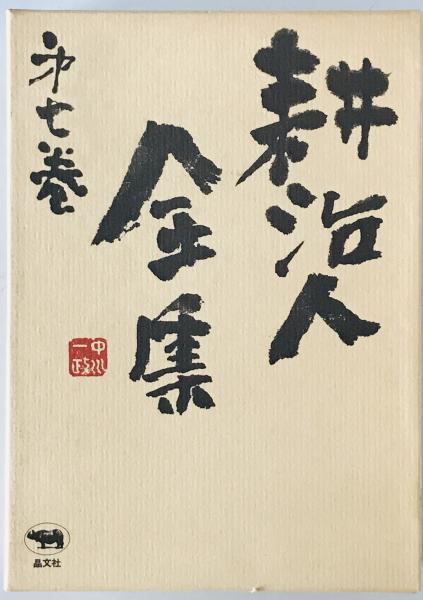 耕治人
全集
第七巻
中川
一政
晶文社